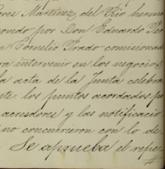 Martinez del Rio
por Don Eduardo
Prado comisionad
intervenir en los negocios
acta de la Junta celebra
los puntos acordados p
acreedores y las notificacio
no concurrieron con lo de
Se aprueba el